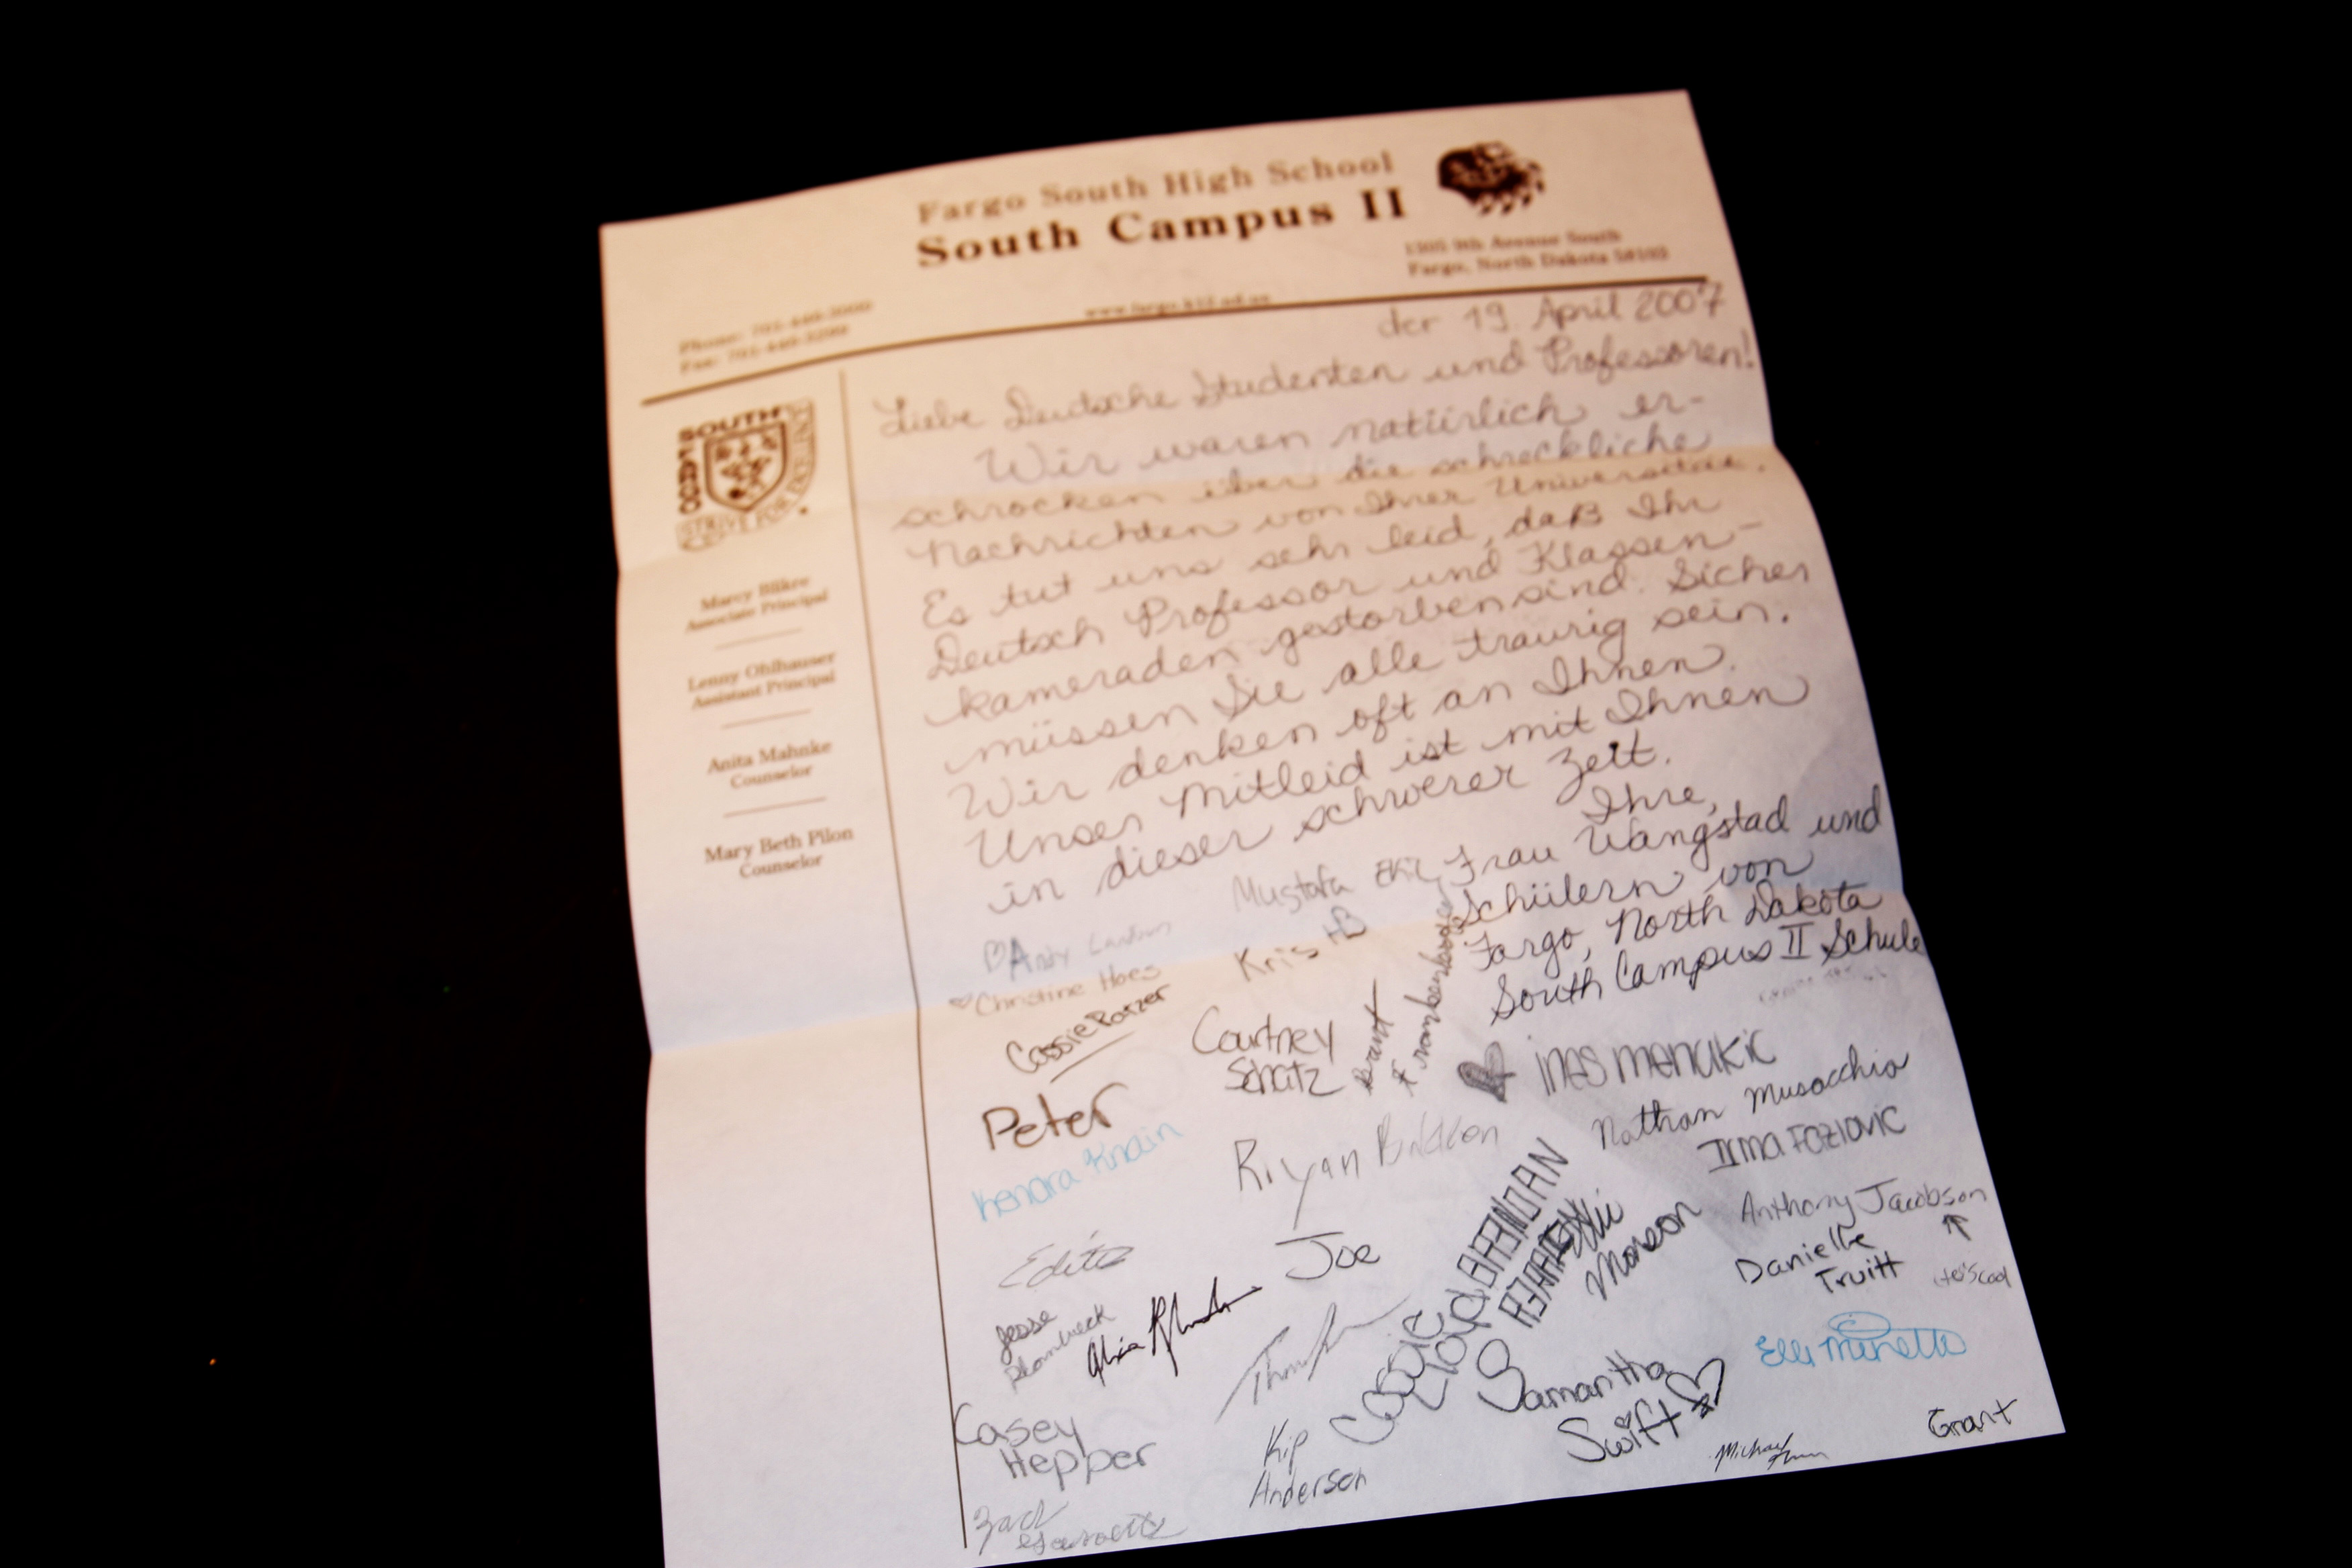 Fargo South High School
South Campus II
1305 9th Avenue South
Fargo, North Dakota 58103
www.fargo.k12.nd.us
Phone: 701-446-2000
Fax: 701-446-2299
der 19. April 2007
SOUTH
STRIVE FOR EXCELLENCE
Marcy Blikre
Associate Principal
Lenny Ohlhauser
Assistant Principal
Anita Mahnke
Counselor
Mary Beth Pilon
Counselor
Liebe Deutsche Studenten und Professoren!
Wir waren natürlich er-
schrocken über die schreckliche
Nachrichten von Ihrer Universität.
Es tut uns sehr leid, daß Ihr
Deutsch Professor und Klassen-
kameraden gestorben sind. Sicher
müssen Sie alle traurig sein.
Wir denken oft an Ihnen.
Unser Mitleid ist mit Ihnen
in dieser schwerer Zeit.
Ihre,
Frau Wangstad und
Schülern von
Fargo, North Dakota
South Campus II Schule
Mustafa
Andy
Kris HB
Christine Hoes
Cassie
Courtney
Schatz
Brant
ines menukic
Peter
Nathan Musacchio
Kendra
Riyan
Irma Fazlovic
Anthony Jacobson
Edita
Joe
BRENDAN
Monson
Danielle
Truitt
He's cool
Jesse
Cassie
Samantha
Swift
Elli
Casey
Hepper
Kip
Anderson
Michael
Grant
Zach